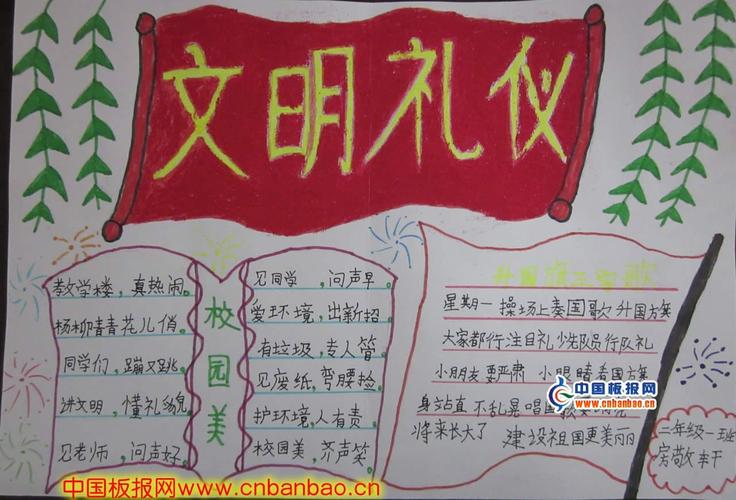 文明礼仪
校园美
教学楼，真热闹。
杨柳青青花儿俏
同学们，蹦又跳
讲文明，懂礼貌
见老师，问声好。
见同学，问声早。
爱环境，出新招
有垃圾，专人管
见废纸，弯腰捡
护环境，人有责
校园美，齐声笑
升国旗
歌
星期一操场上奏国歌升国旗
大家都行注目礼少先队员行队礼
小朋友要严肃小眼睛看国旗
身站直不乱晃唱国歌要
将来长大了建设祖国更美丽
二年级一班
中国板报网
www.cnbanbao.cn
中国板报网www.cnbanbao.cn